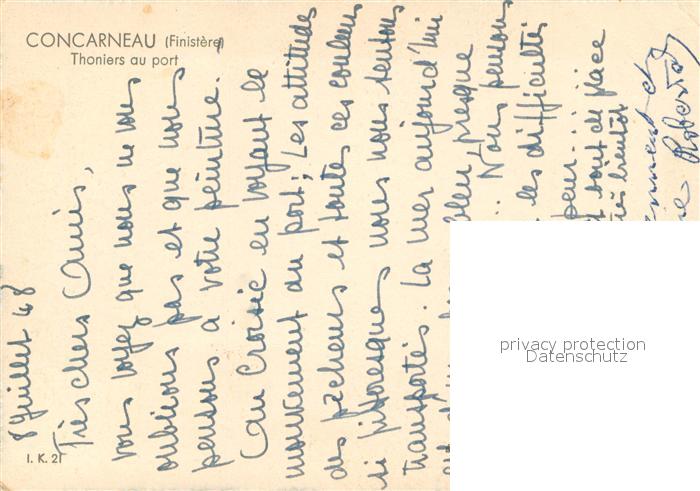 CONCARNEAU (Finistère)
Thoniers au port
8 Juillet 48
Très chers Amis,
vous voyez que nous ne vous
oublions pas et que nous
pensons à votre peinture.
Au Croisic en voyant le
mouvement du port, Les attitudes
des pêcheurs et toutes ces couleurs
si pittoresques nous nous sentons
transportés. La mer aujourd'hui
bleu, presque
Nous pensons
les difficultés
peur...
et soit de place
très bientôt
Roberto
I. K. 21
privacy protection
Datenschutz